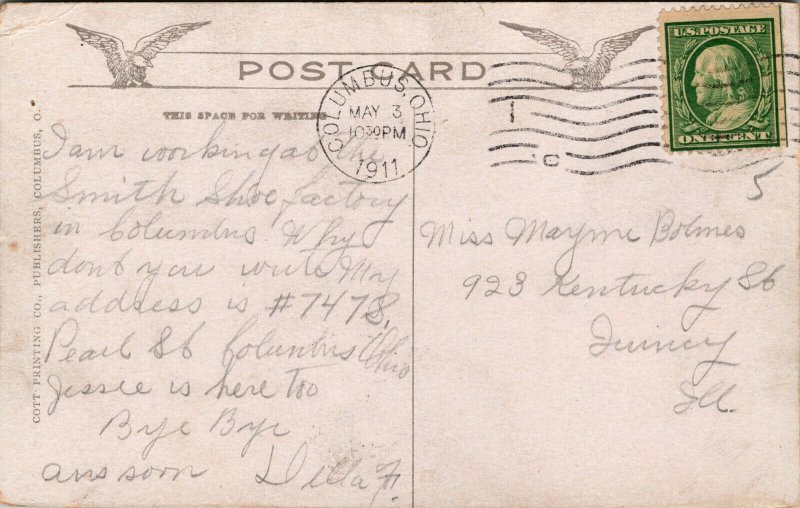 POST CARD
THIS SPACE FOR WRITING
COLUMBUS, OHIO
MAY 3
10 30 PM
1911
1
C
U.S. POSTAGE
ONE CENT
5
I am working at the
Smith Shoe factory
in Columbus Why
dont you write My
address is #747 S.
Pearl St Columbus Ohio
Jessie is here too
Bye Bye
ans soon Della F.
Miss Mayme Bolmes
923 Kentucky St
Quincy
Ill.
COTT PRINTING CO., PUBLISHERS, COLUMBUS, O.